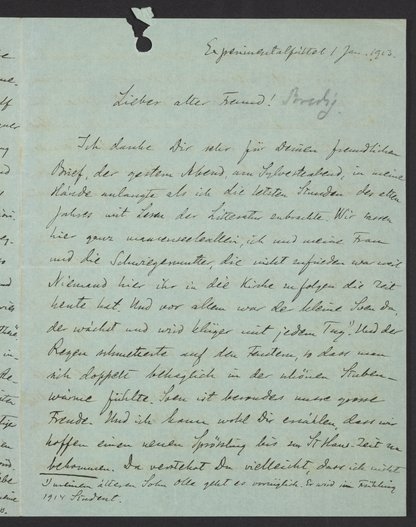 Experimentalfältet 1 Jan. 1913.
Lieber alter Freund! Bredig.
Ich danke Dir sehr für Deinen freundlichen
Brief, der gestern Abend, am Sylvesterabend, in meine
Hände anlangte als ich die letzten Stunden des alten
Jahres mit Lesen der Litteratur zubrachte. Wir waren
hier ganz allein, ich und meine Frau
und die Schwiegermutter die nicht zufrieden war weil
Niemand hier ihr in die Kirche zu folgen die Zeit
heute hat. Und vor allem war der kleine Sven da,
der wächst und wird klüger mit jedem Tag! Und der
Regen schmetterte auf den Fenstern, so dass man
sich doppelt behaglich in der schönen Stuben-
wärme fühlte. Sven ist besonders unsre grosse
Freude. Und ich kann wohl Dir erzählen, dass wir
hoffen einen neuen Sprössling bis zur St Hans-Zeit zu
bekommen. Da verstehst Du vielleicht, dass ich nicht
meinem älteren Sohn Olle geht es vorzüglich. Er wird im Frühling
1914 Student.